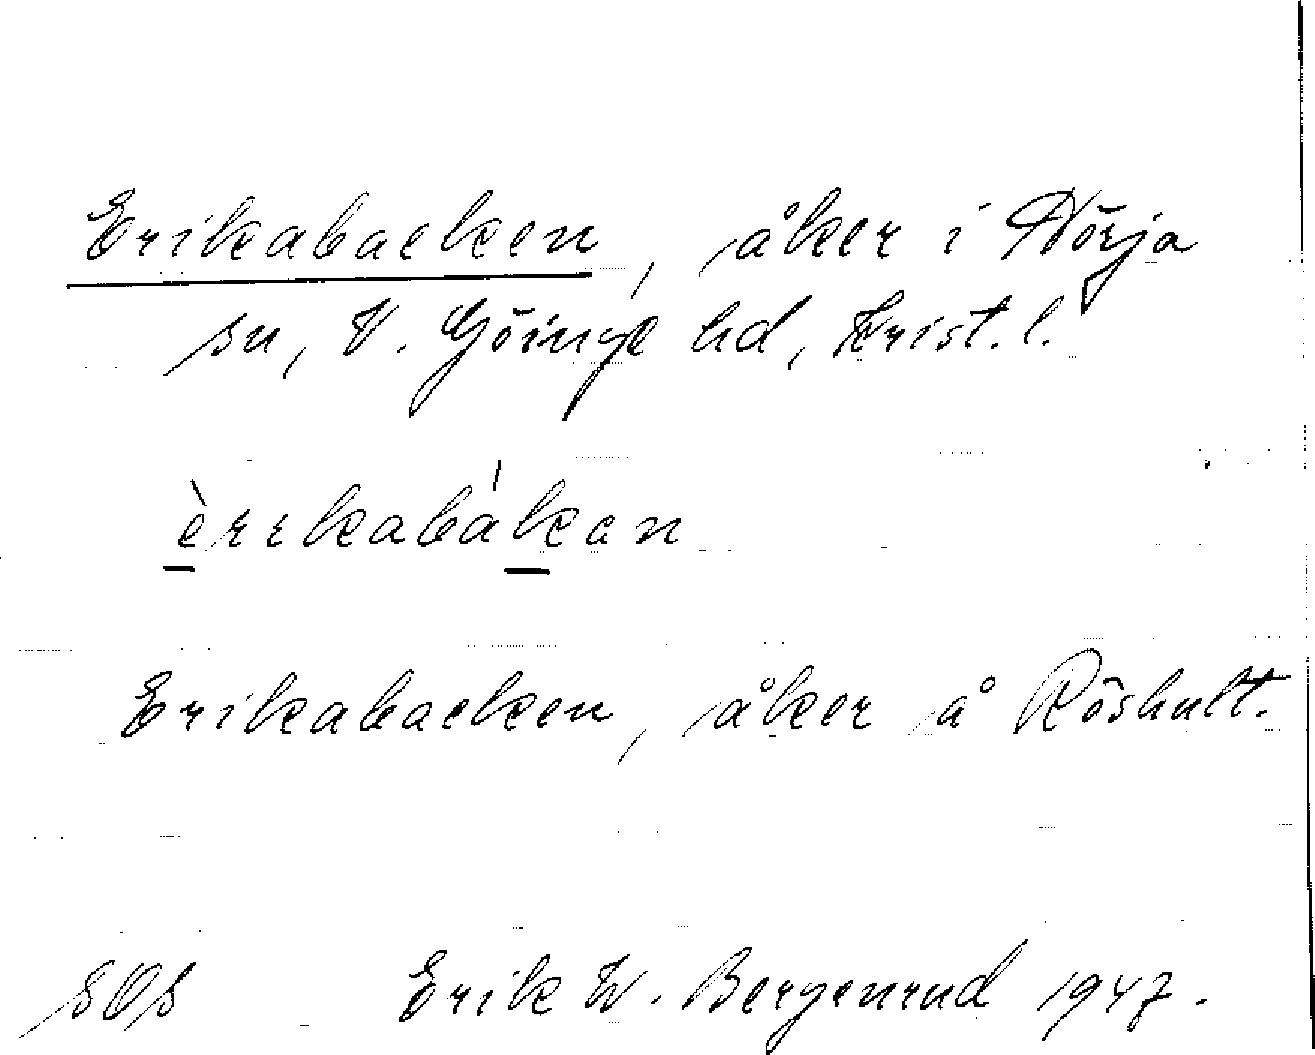 Erikabacken, åker i Nörja
sn, V. Göinge hd, Krist. l.
èrrkabákan
Erikabacken, åker å Röshult.
SOS Erik W. Bergenrud 1947.